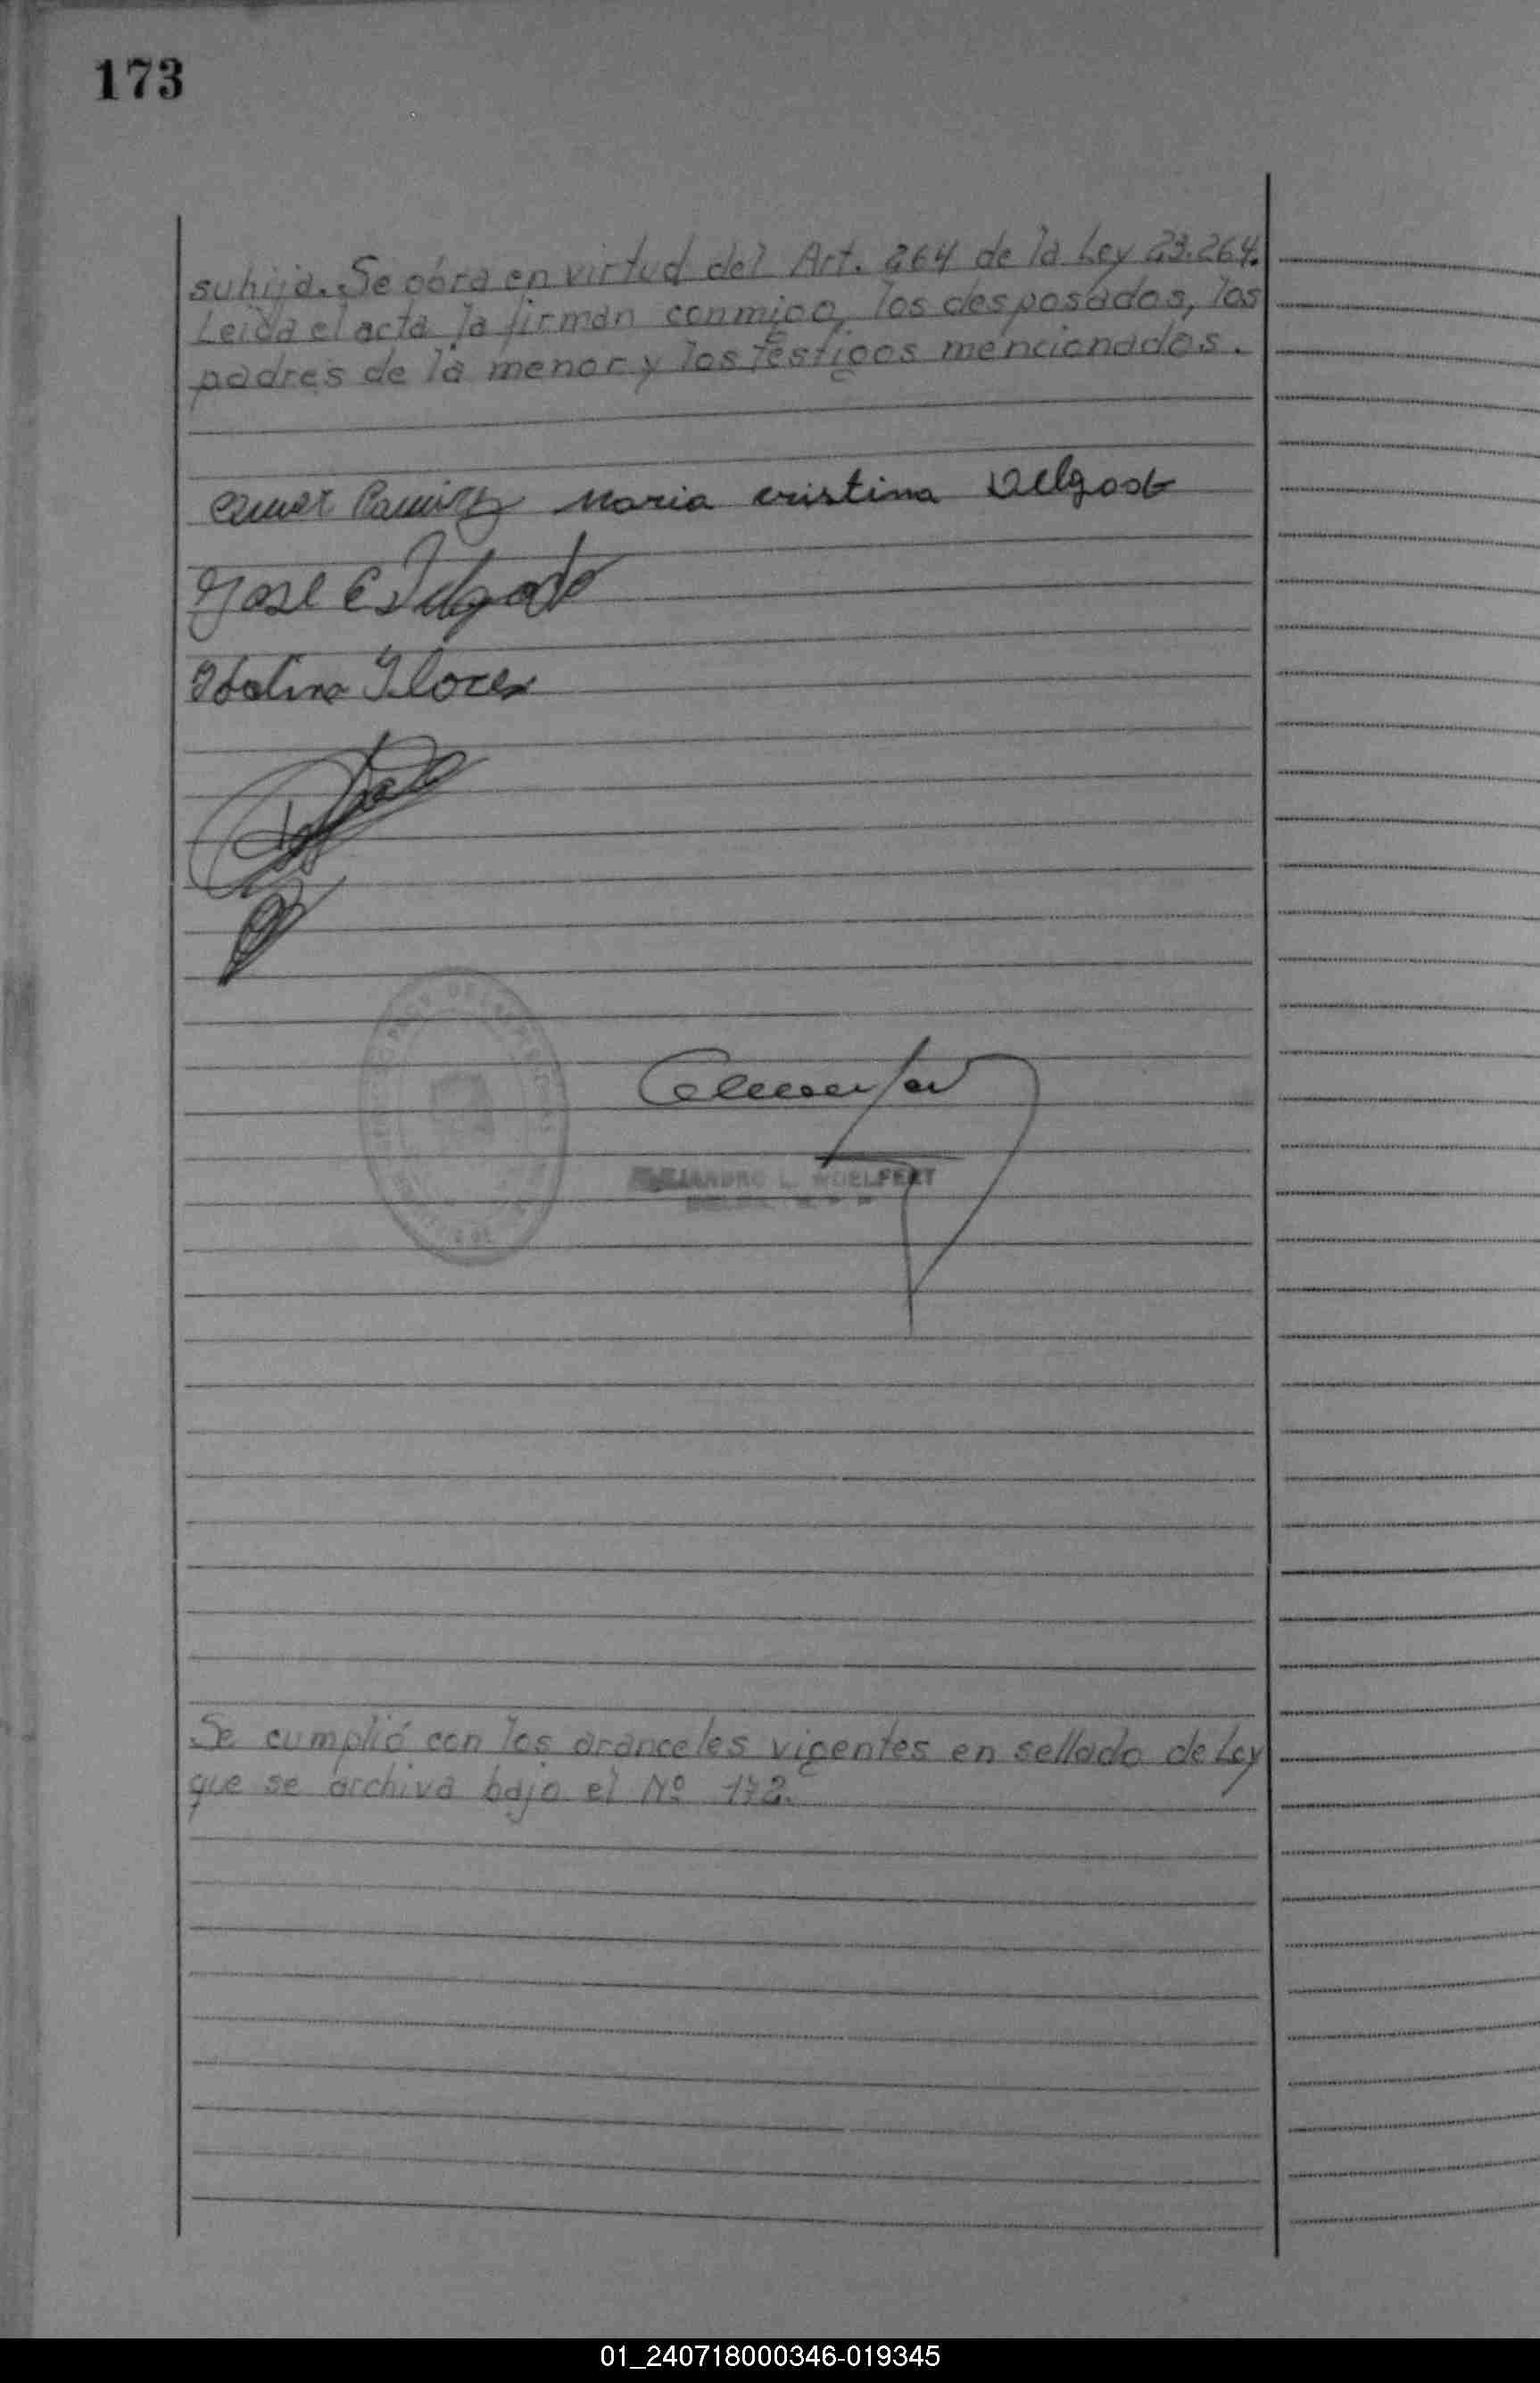 173
su hija. Se obra en virtud del Art. 264 de la Ley 23.264.
Leida el acta la firman conmigo, los desposados, los
padres de la menor y los testigos mencionados.
Ramirez Maria cristina Delgado
Jose E Delgado
Flores
L. WOELFERT
Se cumplió con los aranceles vigentes en sellado de Ley
que se archiva bajo el Nº 172.
01_240718000346-019345